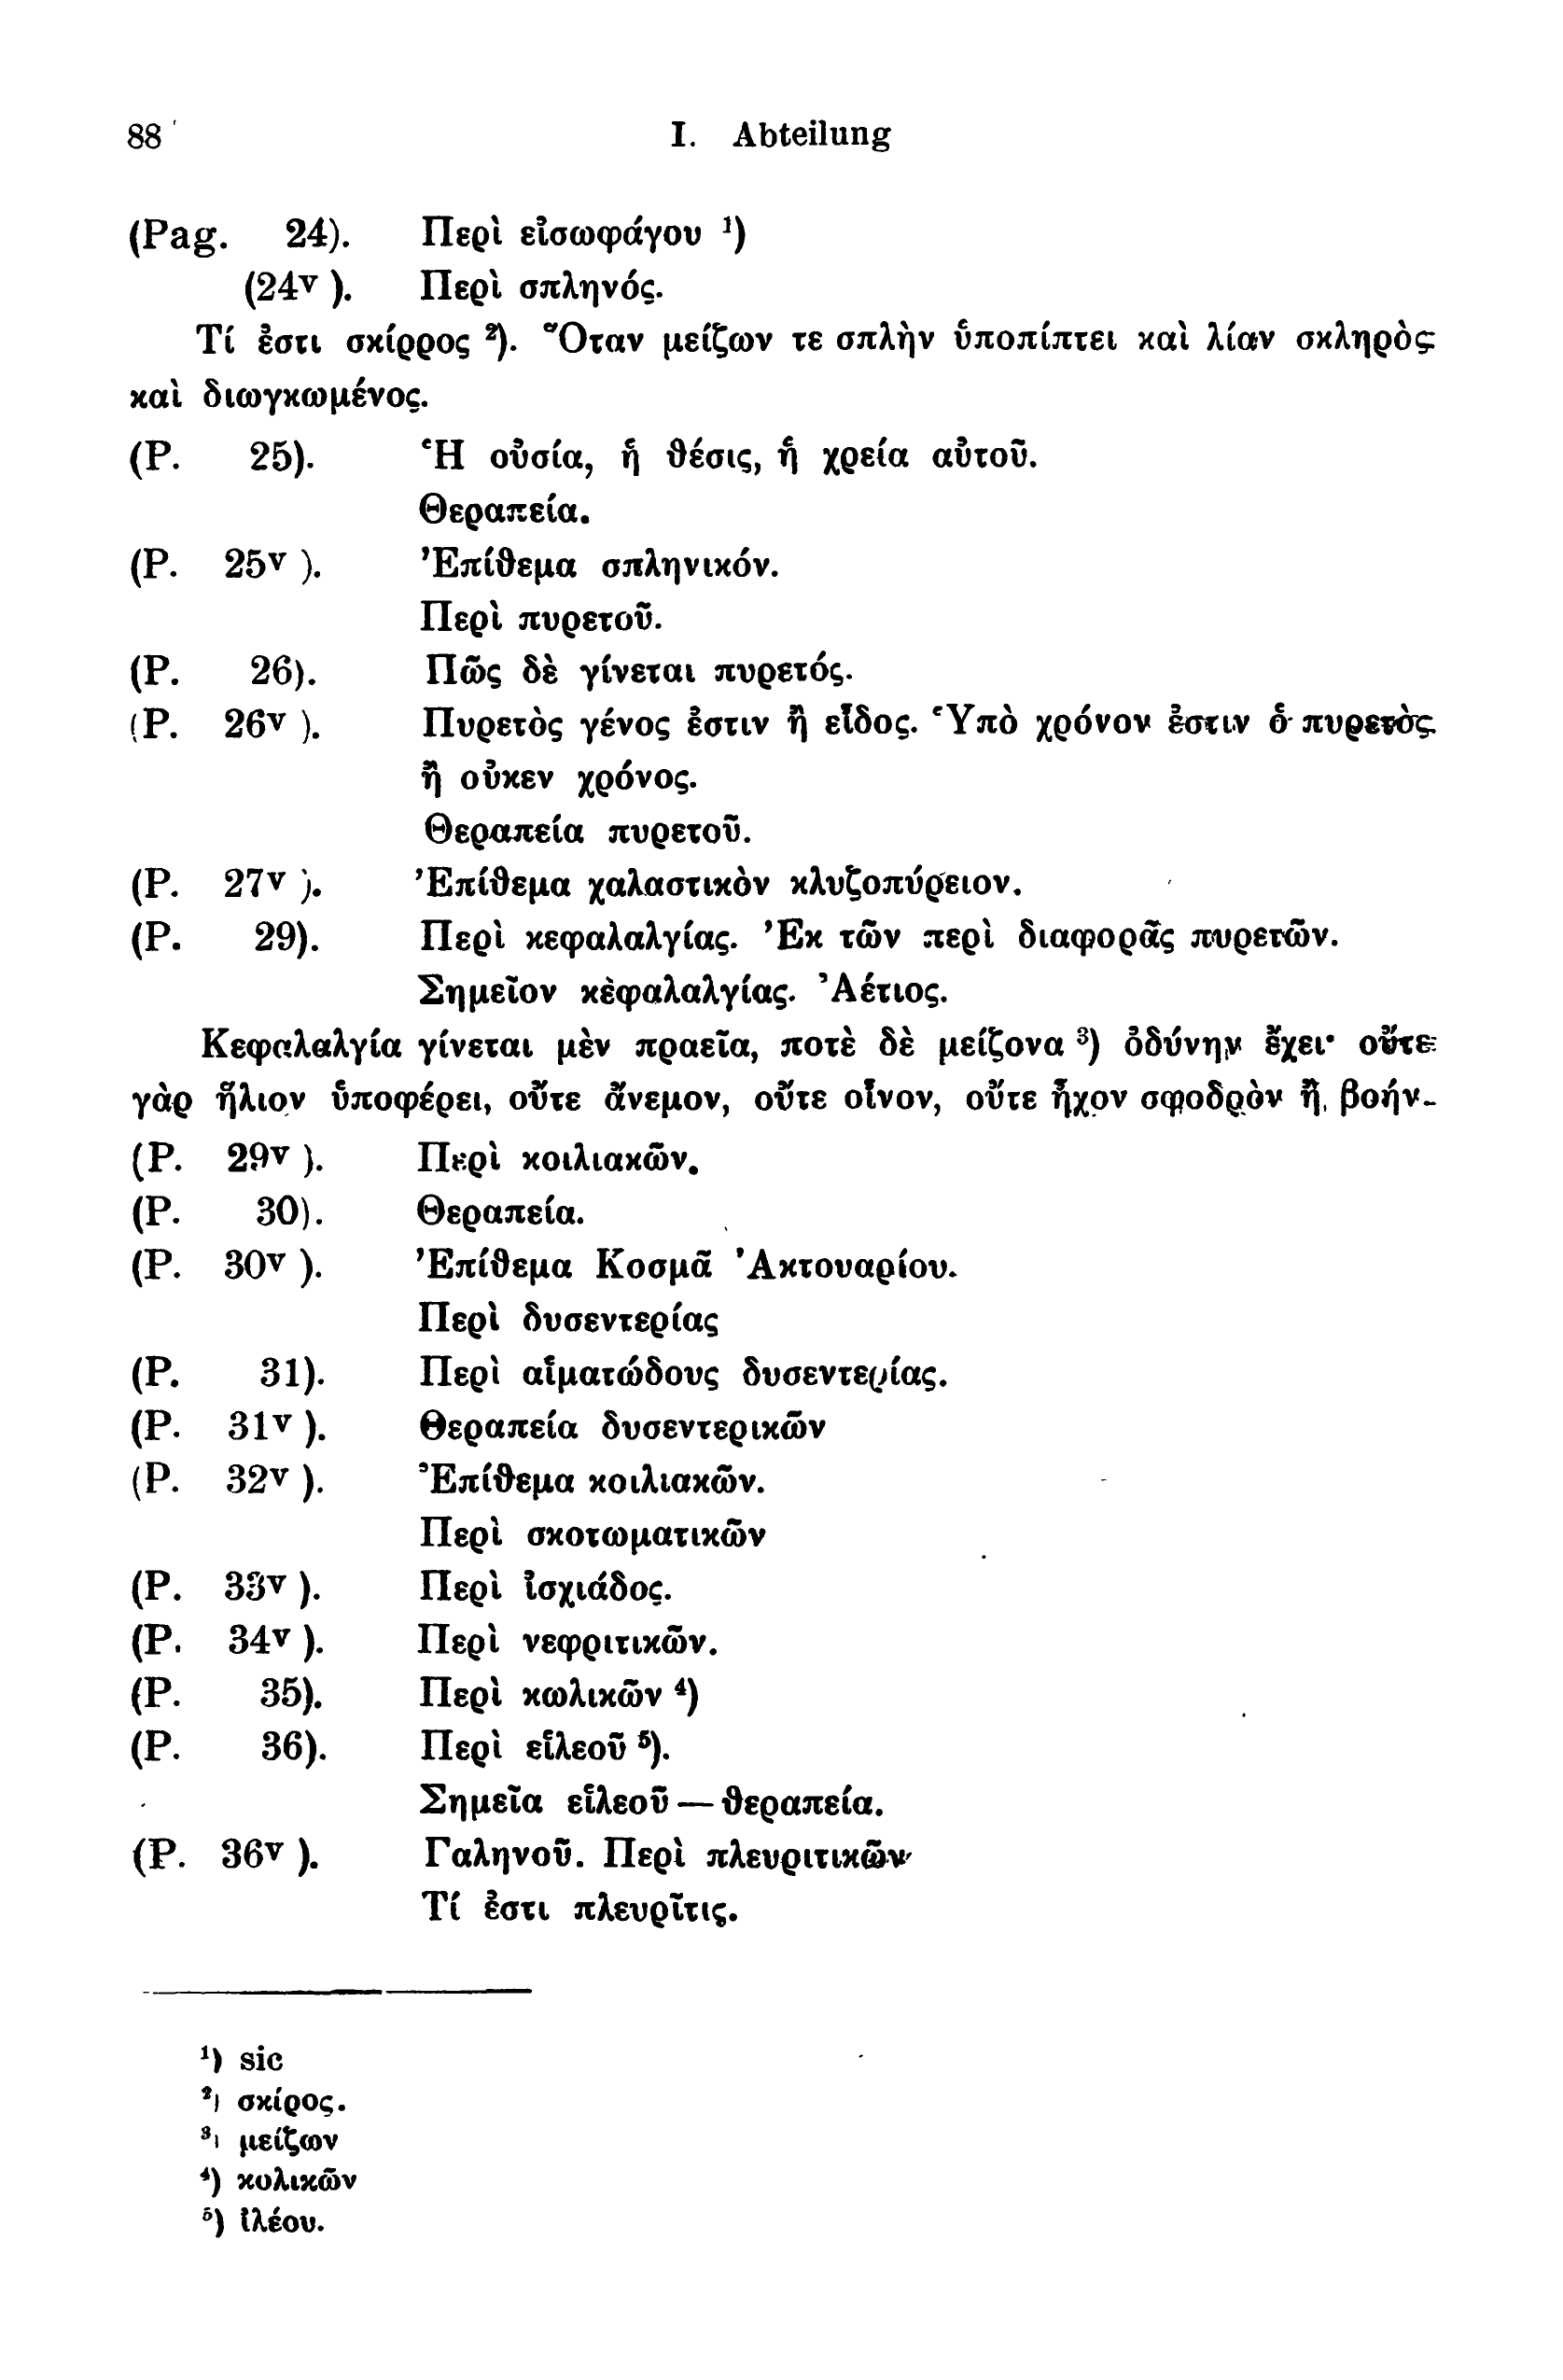 88 I. Abteilung
(Pag. 24). Περὶ εἰσωφάγου ¹)
(24ᵛ ). Περὶ σπληνός.
Τί ἐστι σκίρρος ²). Ὅταν μείζων τε σπλὴν ὑποπίπτει καὶ λίαν σκληρὸς
καὶ διωγκωμένος.
(P. 25). Ἡ οὐσία, ἡ θέσις, ἡ χρεία αὐτοῦ.
Θεραπεία.
(P. 25ᵛ ). Ἐπίθεμα σπληνικόν.
Περὶ πυρετοῦ.
(P. 26). Πῶς δὲ γίνεται πυρετός.
(P. 26ᵛ ). Πυρετὸς γένος ἐστιν ἢ εἶδος. Ὑπὸ χρόνον ἐστιν ὁ πυρετὸς
ἢ οὐκεν χρόνος.
Θεραπεία πυρετοῦ.
(P. 27ᵛ ). Ἐπίθεμα χαλαστικὸν κλυζοπύρειον.
(P. 29). Περὶ κεφαλαλγίας. Ἐκ τῶν περὶ διαφορᾶς πυρετῶν.
Σημεῖον κὲφαλαλγίας. Ἀέτιος.
Κεφαλαλγία γίνεται μὲν πραεῖα, ποτὲ δὲ μείζονα ³) ὀδύνην ἔχει· οὔτε
γὰρ ἥλιον ὑποφέρει, οὔτε ἄνεμον, οὔτε οἶνον, οὔτε ἦχον σφοδρὸν ἢ βοήν.
(P. 29ᵛ ). Περὶ κοιλιακῶν.
(P. 30). Θεραπεία.
(P. 30ᵛ ). Ἐπίθεμα Κοσμᾶ Ἀκτουαρίου.
Περὶ δυσεντερίας
(P. 31). Περὶ αἱματώδους δυσεντερίας.
(P. 31ᵛ ). Θεραπεία δυσεντερικῶν
(P. 32ᵛ ). Ἐπίθεμα κοιλιακῶν.
Περὶ σκοτωματικῶν
(P. 33ᵛ ). Περὶ ἰσχιάδος.
(P. 34ᵛ ). Περὶ νεφριτικῶν.
(P. 35). Περὶ κωλικῶν ⁴)
(P. 36). Περὶ εἰλεοῦ ⁵).
Σημεῖα εἰλεοῦ — θεραπεία.
(P. 36ᵛ ). Γαληνοῦ. Περὶ πλευριτικῶν
Τί ἐστι πλευρῖτις.
¹) sic
²) σκίρος.
³) μείζων
⁴) κυλικῶν
⁵) ἰλέου.